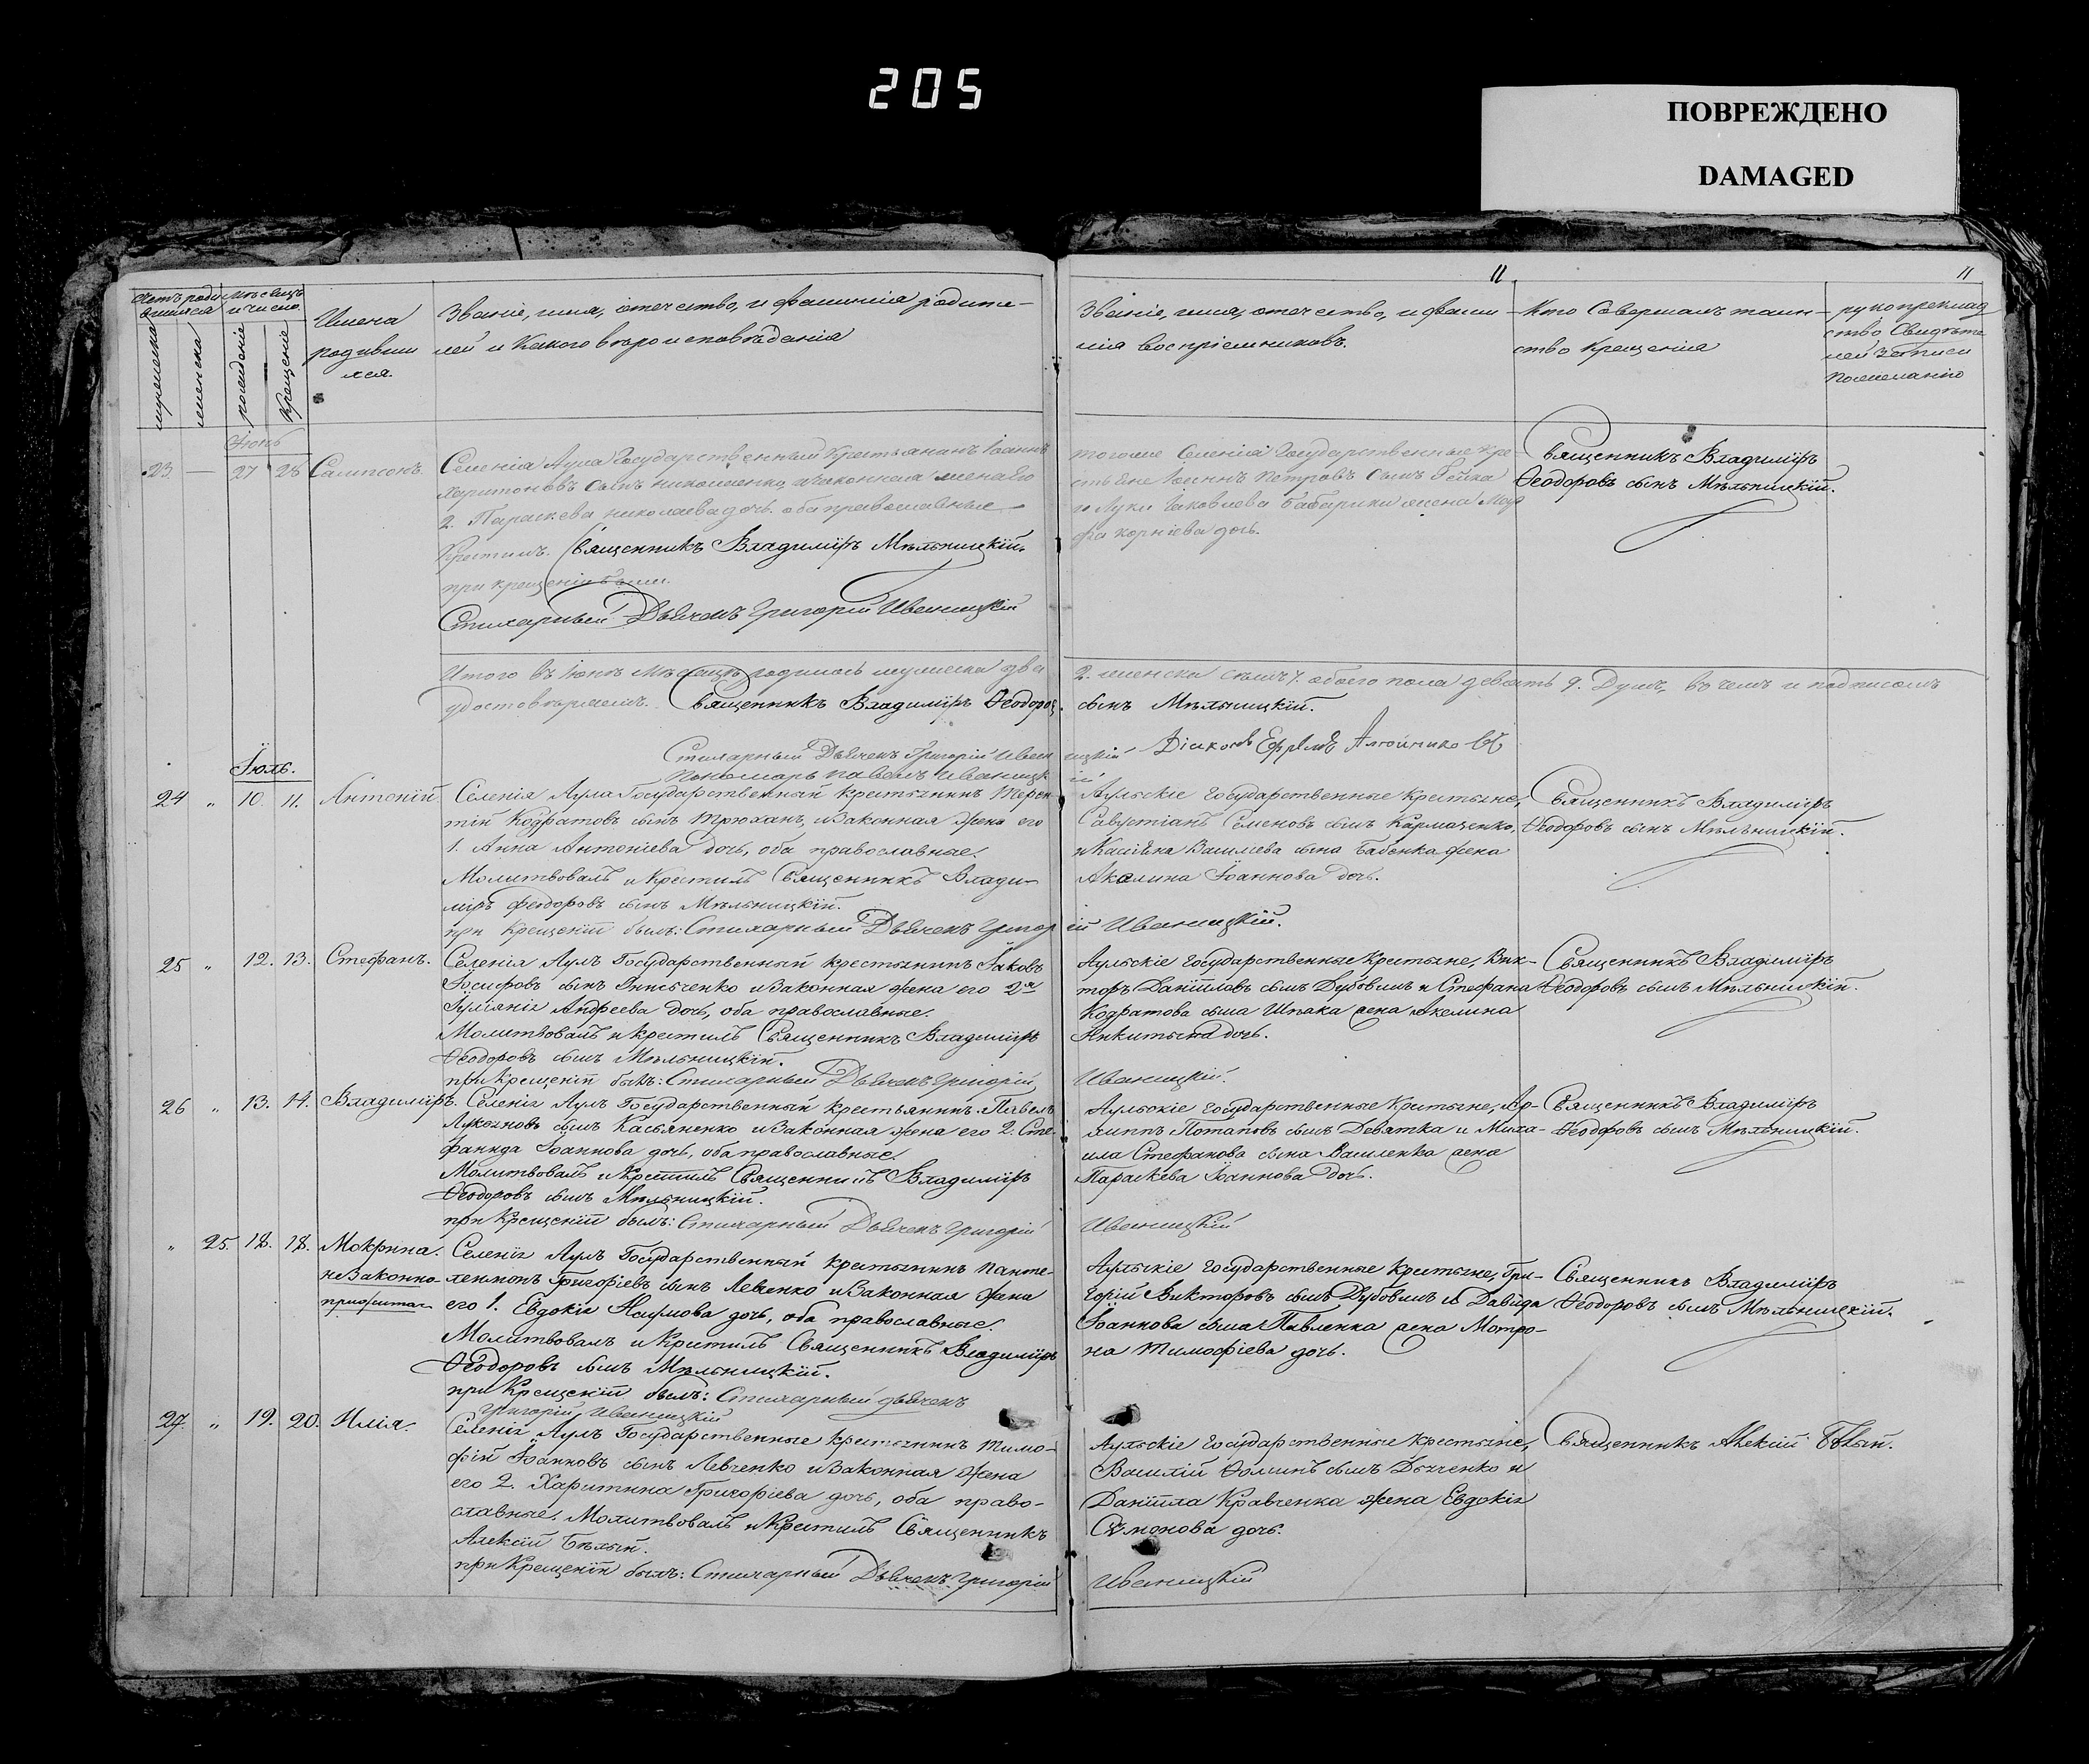 205
ПОВРЕЖДЕНО
DAMAGED
11
11
Счетъ роди
вшихся
Мѣсяцъ
и число.
мужеска
женска
рожденіе
Крещеніе
Имена
родивши
хся.
Званіе, имя, отечество, и фамилія родите-
лей и Какого вѣроисповѣданія
Званіе, имя, отечество, и фами-
лія воспріемниковъ.
Кто Совершалъ таин-
ство Крещенія
рукоприклад
ство Свидѣте
лей записи
По желанію
Іюнь
23 — 27 28 Сампсонъ.
Селенія Аула Государственный Крестьянинъ Іоаннъ
Харитоновъ сынъ николаенко, и законная жена его
2. Параскева николаева дочь. оба православные
Крестилъ. Священникъ Владиміръ Мѣльницкій.
при крещеніи были.
Стихарный Дьячекъ Григорій Иваницкій
тогоже Селенія Государственные кре-
стьяне Іоаннъ Петровъ сынъ
и Луки Іаковлева Бабарики жена Мар
фа корніева дочь.
Священникъ Владиміръ
Ѳеодоровъ сынъ Мѣльницкій.
Итого въ Іюнѣ Мѣсяцѣ родилось мужеска два
2. женска семь 7. обоего пола девять 9. Душъ, въ чемъ и подписомъ
удостовѣряемъ. Священникъ Владиміръ Ѳеодоров
сынъ Мѣльницкій.
Стихарный Дьячекъ Григорій Иван
ицкій Діаконъ
Пономарь Павелъ Иваницк
ій
Іюль.
24 " 10. 11. Антоній.
Селенія Аула Государственный крестьянинъ Терен-
тій Кодратовъ сынъ Трюханъ, и Законная Жена его
1. Анна Антоніева дочь, оба православные.
Молитвовалъ и Крестилъ Священникъ Влади-
міръ Феодоровъ сынъ Мѣльницкій.
при Крещеніи былъ: Стихарный Дьячекъ Григор
ій Иваницкій.
Аульскіе Государственные Крестьяне,
Савустіанъ Семеновъ сынъ Кармазенко,
и Касіяна Василіева сына Бабенка жена
Акелина Іоаннова дочь.
Священникъ Владиміръ
Ѳеодоровъ сынъ Мѣльницкій.
25 " 12. 13. Стефанъ.
Селенія Аулъ Государственный крестьянинъ Іаковъ
Іосифовъ сынъ и Законная жена его 2я
Іуліанія Андреева дочь, оба православные.
Молитвовалъ и крестилъ Священникъ Владиміръ
Ѳеодоровъ сынъ Мѣльницкій.
при Крещеніи былъ: Стихарный Дьячекъ Григорій
Иваницкій.
Аульскіе Государственные Крестьяне, Вик-
торъ Даніиловъ сынъ Дубовикъ и Стефана
Кодратова сына Шпака жена Акелина
Никитына дочь.
Священникъ Владиміръ
Ѳеодоровъ сынъ Мѣльницкій.
26 " 13. 14. Владиміръ.
Селенія Аулъ Государственный крестьянинъ Павелъ
Лукіановъ сынъ Касьяненко и Законная жена его 2. Сте-
фанида Іоаннова дочь, оба православные.
Молитвовалъ и Крестилъ Священникъ Владиміръ
Ѳеодоровъ сынъ Мѣльницкій.
при Крещеніи былъ: Стихарный Дьячекъ Григорій
Иваницкій
Аульскіе Государственные Крестьяне, Ар-
хиппъ Потаповъ сынъ Девятка и Миха-
ила Стефанова сына Василенка жена
Параскева Іоаннова дочь.
Священникъ Владиміръ
Ѳеодоровъ сынъ Мѣльницкій.
" 25. 18. 18. Мокрина.
незаконно-
прижитая
Селенія Аулъ Государственный крестьянинъ Панте-
леимонъ Григоріевъ сынъ Левченко и Законная жена
его 1. Евдокія Наумова дочь, оба православные.
Молитвовалъ и Крестилъ Священникъ Владиміръ
Ѳеодоровъ сынъ Мѣльницкій.
при Крещеніи былъ: Стихарный дьячекъ
Григорій Иваницкій
Аульскіе Государственные Крестьяне, Гри-
горій Викторовъ сынъ Дубовикъ и Давида
Іоаннова сына Павленка жена Мотро-
на Тимофіева дочь.
Священникъ Владиміръ
Ѳеодоровъ сынъ Мѣльницкій.
27. " 19. 20. Илія.
Селенія Аулъ Государственные крестьянинъ Тимо-
фій Іоанновъ сынъ Левченко и Законная Жена
его 2. Харитина Григоріева дочь, оба право-
славные. Молитвовалъ и Крестилъ Священникъ
Алексій Бѣлый.
при Крещеніи былъ: Стихарный Дьячекъ Григорій
Иваницкій
Аульскіе Государственные Крестьяне,
Василій Ѳоминъ сынъ Дьяченко и
Даніила Кравченка жена Евдокія
Сѵмонова дочь.
Священникъ Алексій Бѣлый.